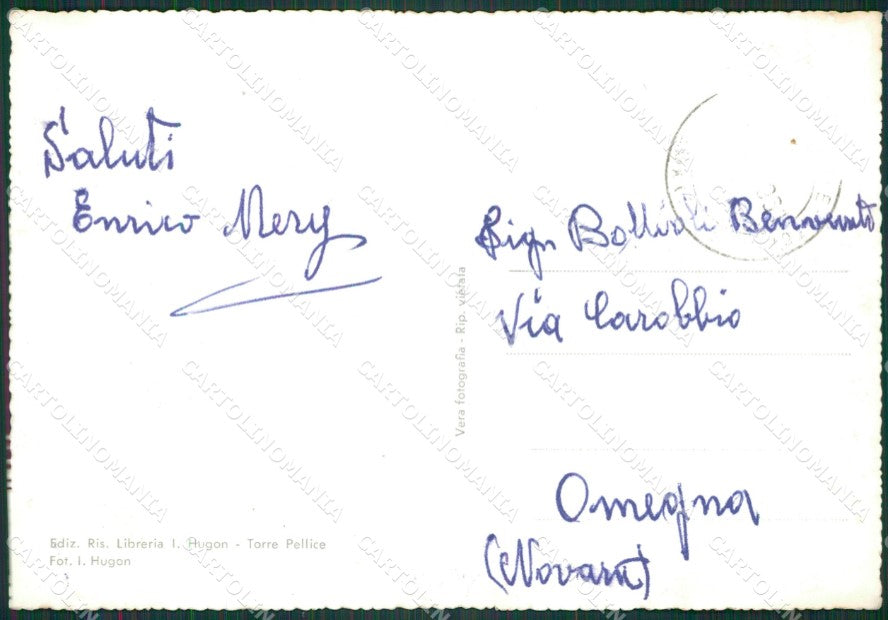 Saluti
Enrico Mery
Sign Bollioli Benvenuto
Via Carobbio
Omegna
(Novara)
Vera fotografia - Rip. vietata
Ediz. Ris. Libreria I. Hugon - Torre Pellice
Fot. I. Hugon
CARTOLINOMANIA